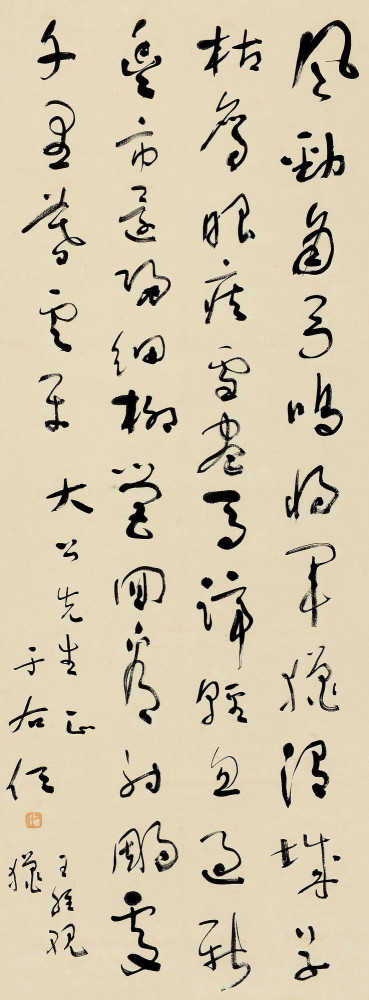 風勁角弓鳴將軍獵渭城草
枯鷹眼疾雪盡馬蹄輕忽過新
豐市還歸細柳營回看射鵰處
千里暮雲平
大公先生正
于右任
王維觀
獵